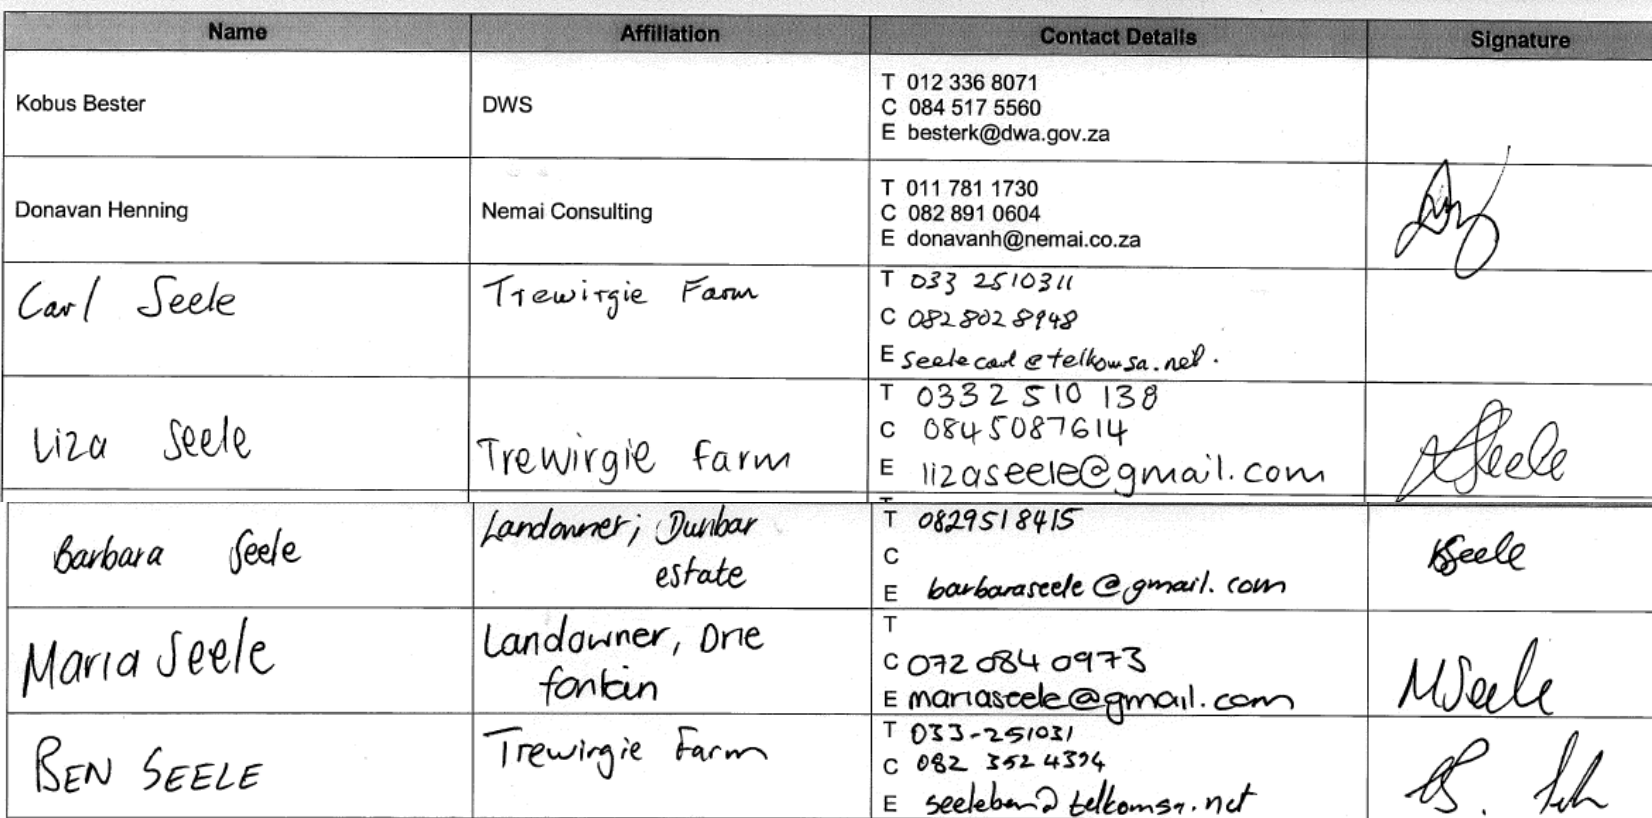 Name Affiliation Contact Details Signature
Kobus Bester DWS T 012 336 8071
C 084 517 5560
E besterk@dwa.gov.za
Donavan Henning Nemai Consulting T 011 781 1730
C 082 891 0604
E donavanh@nemai.co.za
Carl Seele Trewirgie Farm T 033 2510311
C 0828028948
E seelecarl@telkomsa.net.
Liza Seele Trewirgie farm T 0332 510 138
C 0845087614
E lizaseele@gmail.com
Seele
Barbara Seele Landowner; Dunbar
estate
T 0829518415
C
E barbaraseele@gmail.com
BSeele
Maria Seele Landowner, Drie
fontein
T
C 072 084 0973
E mariaseele@gmail.com
MSeele
BEN SEELE Trewirgie Farm T 033-251031
C 082 352 4394
E seeleben@telkomsa.net